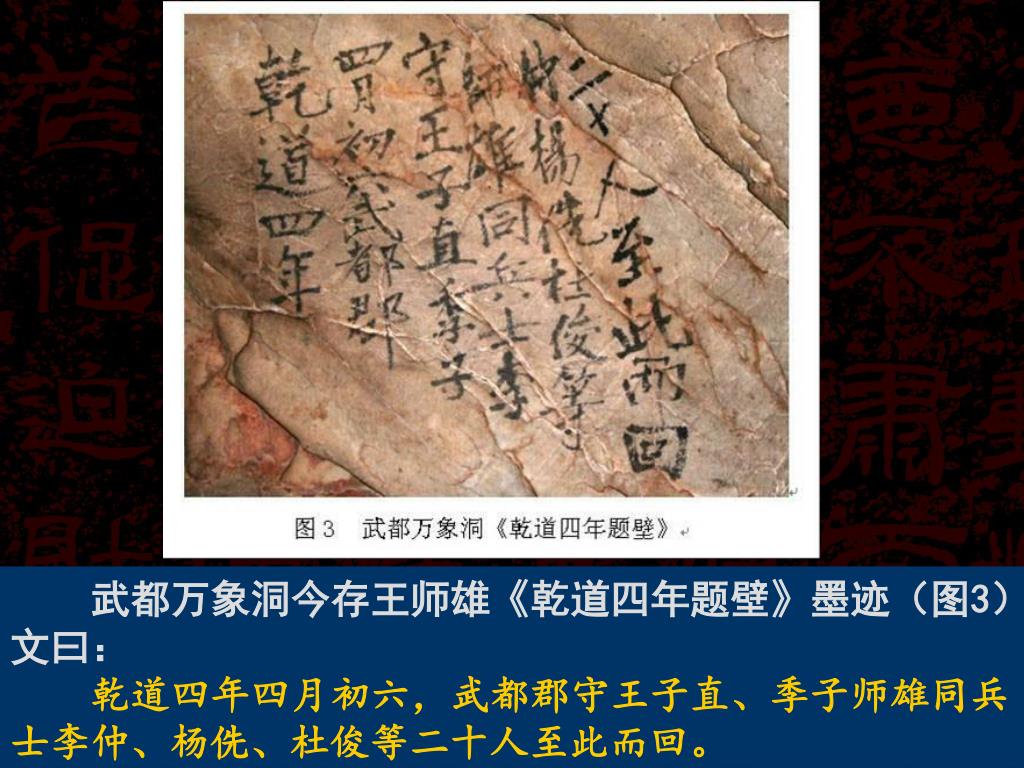 乾道四年
四月初六武都郡
守王子直季子
師雄同兵士李
仲楊侁杜俊等
二十人至此而回
图3 武都万象洞《乾道四年题壁》
武都万象洞今存王师雄《乾道四年题壁》墨迹（图3）
文曰：
乾道四年四月初六，武都郡守王子直、季子师雄同兵
士李仲、杨侁、杜俊等二十人至此而回。